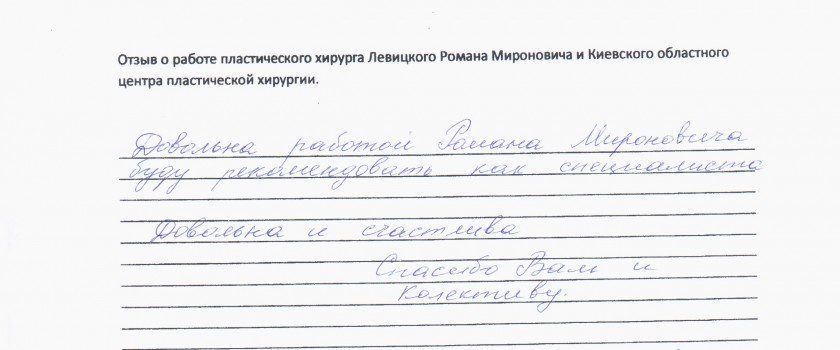 Отзыв о работе пластического хирурга Левицкого Романа Мироновича и Киевского областного
центра пластической хирургии.
Довольна работой Романа Мироновича
буду рекомендовать как специалиста
Довольна и счастлива
Спасибо Вам и
Колективу.